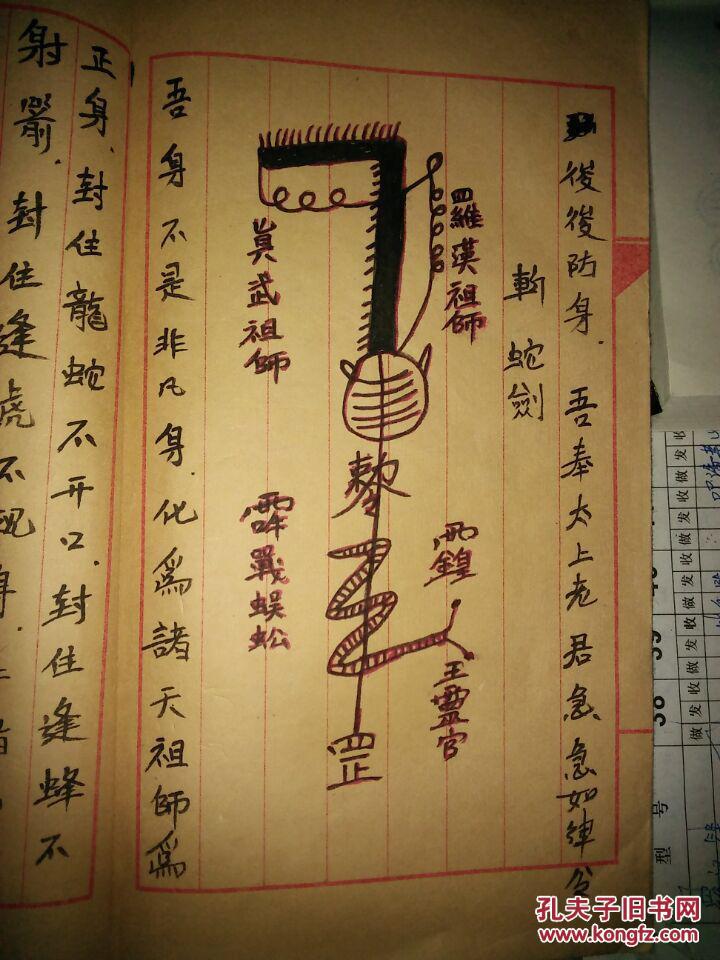 後後防身.吾奉太上老君急急如律令
斬蛇劍
四維漢祖師
王靈官
敕
罡
真武祖師
戰蜈蚣
吾身不是非凡身.化為諸天祖師為
正身.封住龍蛇不開口.封住逢蜂不
射箭.封住逢虎不現身
型 号
38
39
做 发 收
孔夫子旧书网
www.kongfz.com